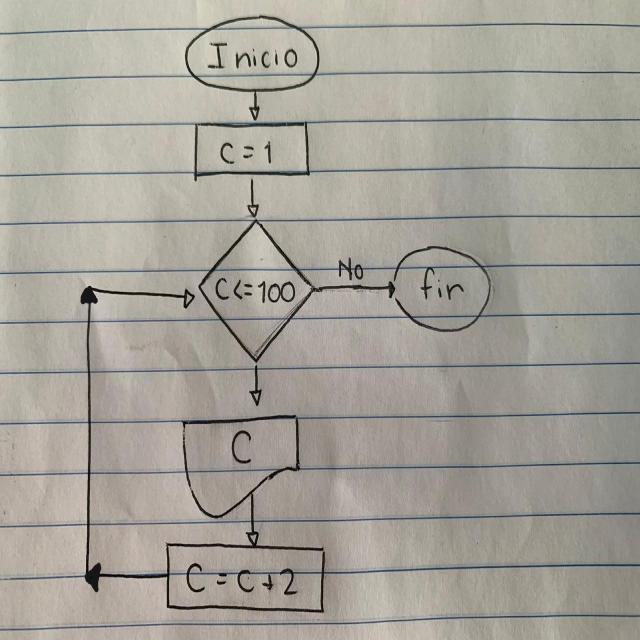 Inicio
C = 1
C <= 100
No
fin
C
C = C + 2